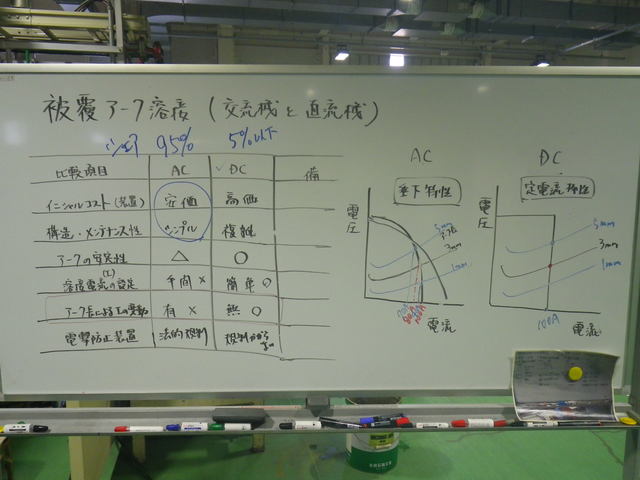 被覆アーク溶接（交流機と直流機）
シェア 95% 5%以下
比較項目 AC DC 備
イニシャルコスト（装置） 安価 高価
構造・メンテナンス性 シンプル 複雑
アークの安定性 △ ○
溶接電流の設定 (I) 手間 × 簡単 ○
アーク長による Iの変動 有 × 無 ○
電撃防止装置 法的規制 規制がかからない
AC
垂下特性
電圧
5mm
3mm
1mm
電流
DC
定電流特性
電圧
5mm
3mm
1mm
100A
電流